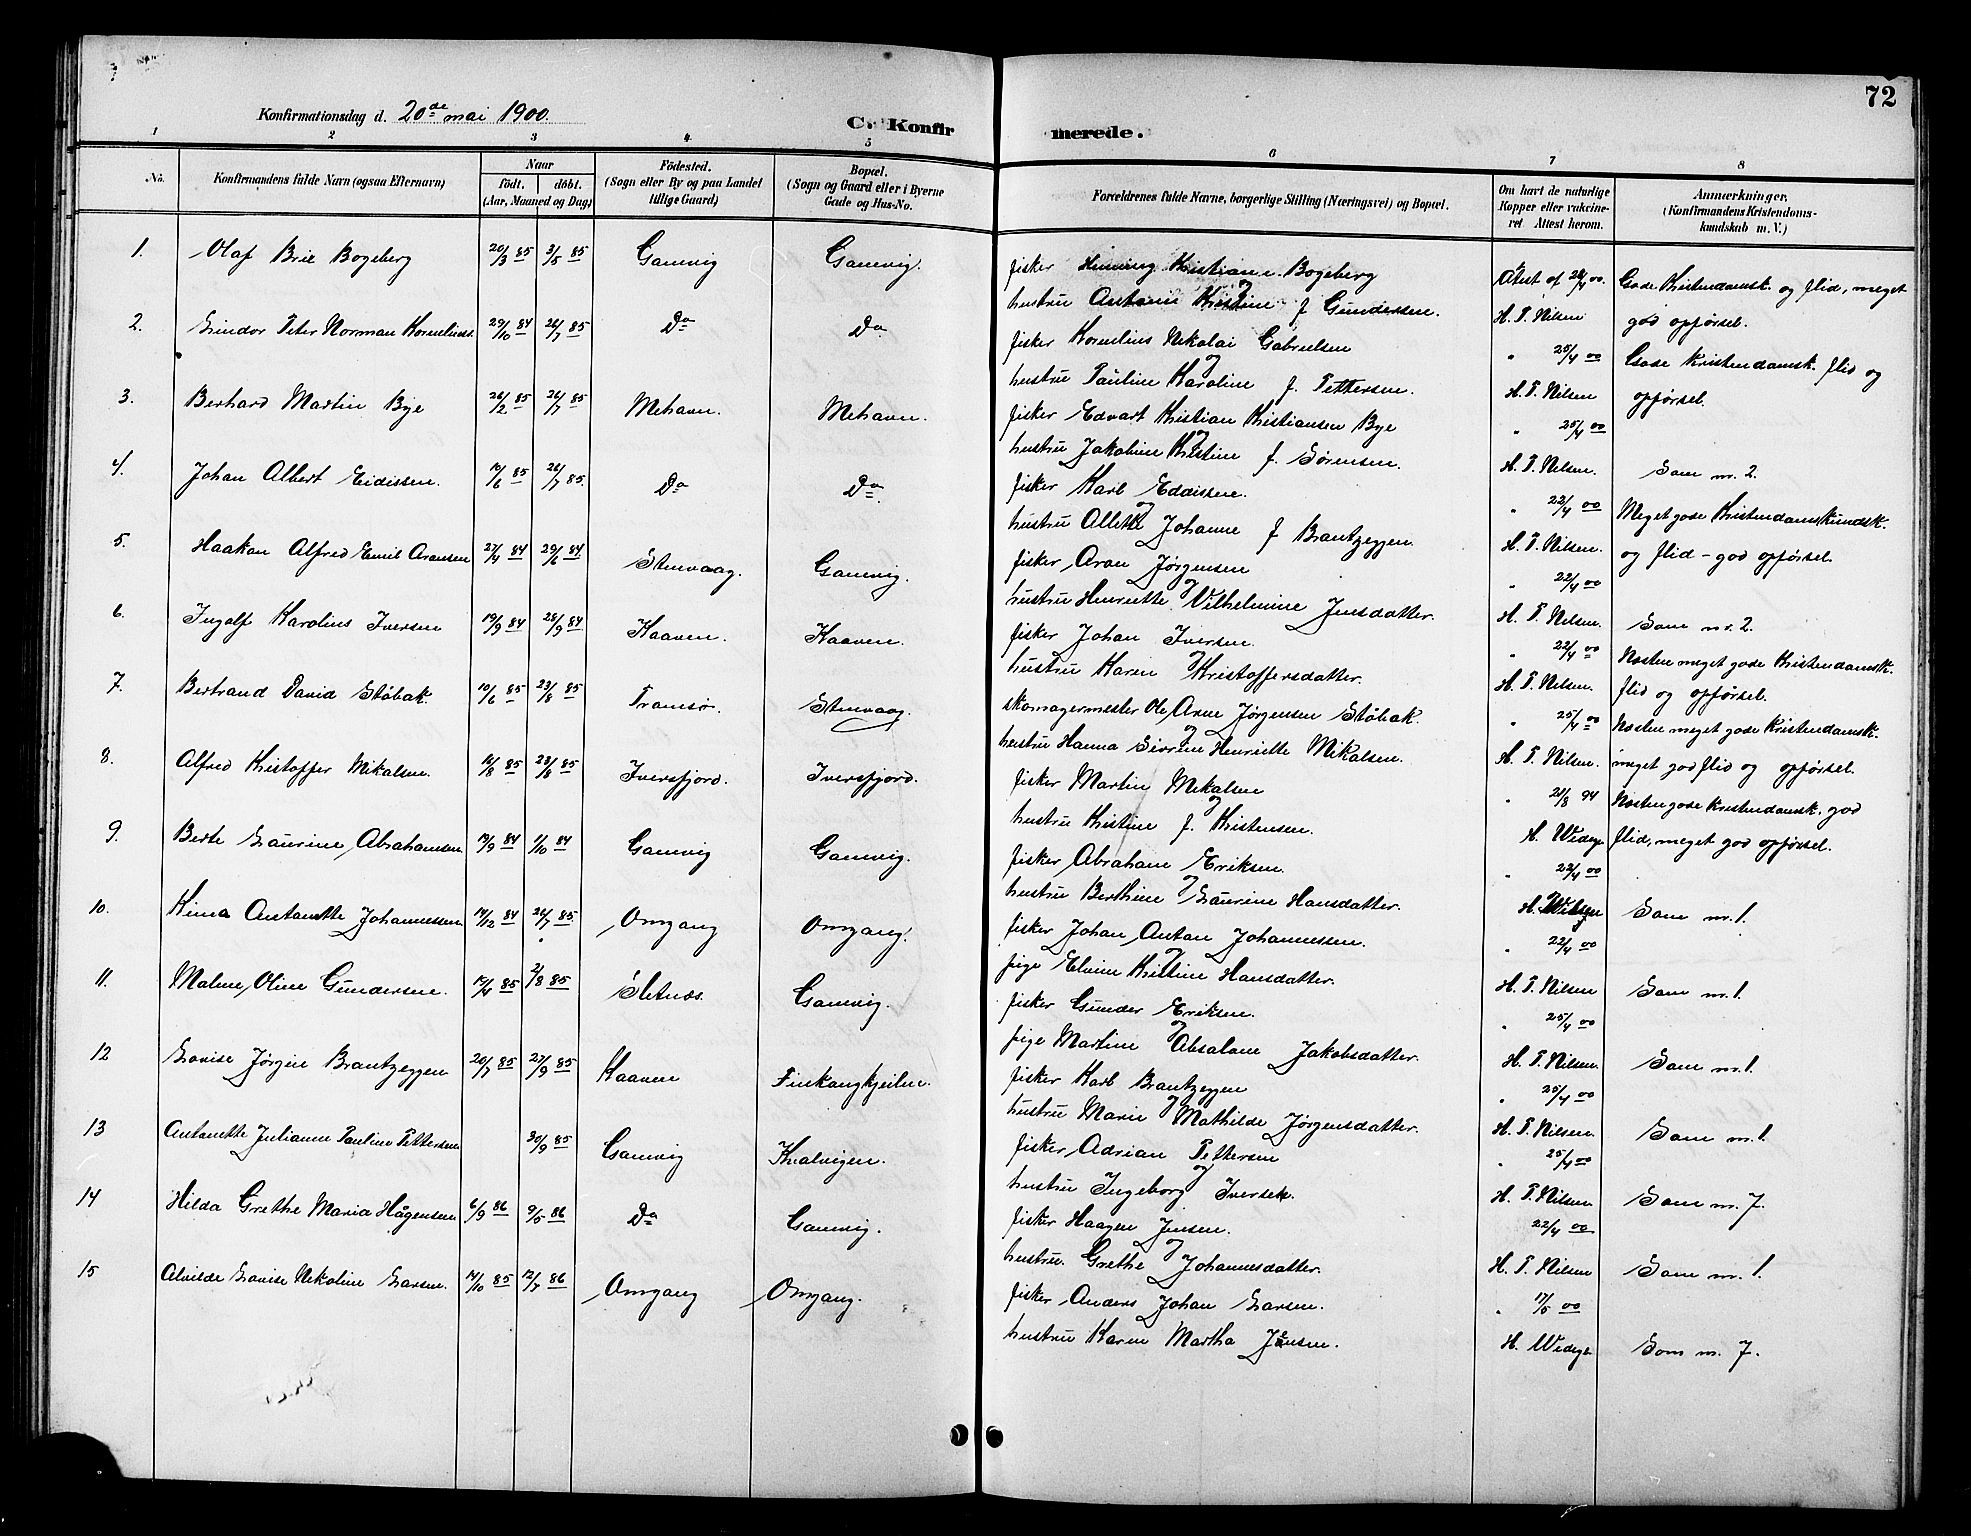 72
Konfirmationsdag d. 20de mai 1900.
C. Konfirmerede.
1 2 3 4 5 6 7 8
No.
Konfirmandens fulde Navn (ogsaa Efternavn)
Naar
födt. döbt.
(Aar, Maaned og Dag)
Födested.
(Sogn eller By og paa Landet
tillige Gaard)
Bopæl.
(Sogn og Gaard eller i Byerne
Gade og Hus-No.
Forældrenes fulde Navne, borgerlige Stilling (Næringsvei) og Bopæl.
Om havt de naturlige
Kopper eller vakcineret
Attest herom.
Anmærkninger.
(Konfirmandens Kristendomskundskab
m. V.)
1. Olaf Brie Bogeberg 20/3 85 3/5 85 Gamvig Gamvig.
fisker Henning Kristian Bogeberg
og
hustru Antonie Kristine f Gundersen.
Attest af 28/4 00.
H. T. Nilsen
Gode Kristendomsk. og flid, meget
god opførsel.
2. Lindor Peter Norman Korneliuss. 29/10 84 26/7 85 Do Do
fisker Kornelius Nikolai Gabrielsen
og
hustru Pauline Karoline f. Pettersen.
" 25/4 00
H. T. Nilsen
Gode Kristendomsk. flid og
opførsel.
3. Berhard Martin Bye 26/2 85 26/7 85 Mehavn. Mehavn.
fisker Edvart Kristian Kristiansen Bye
og
hustru Jakobine Kristine f. Sørensen.
" 25/4 00
H. T. Nilsen.
Som nr. 2.
4. Johan Albert Eidissen. 19/6 85 26/7 85. Do Do
fisker Karl Eddissen.
og
hustru Allette Johanne f Brantzeggen.
" 22/4 00
H. T. Nilsen.
Meget gode Kristendomskundsk.
og flid - god opførsel.
5. Haakon Alfred Emil Aronsen 27/4 84 29/6 84. Stenvaag. Gamvig.
fisker Aron Jørgensen
og
hustru Henriette Vilhelmine Jensdatter.
" 22/4 00
H. T. Nilsen.
Som nr. 2.
6. Ingolf Karolius Iversen 19/9 84 28/9 84 Kaaven. Kaaven.
fisker Johan Iversen.
og
hustru Karen Kristoffersdatter.
" 22/4 00
H. T. Nilsen.
Næsten meget gode Kristendomsk.
flid og opførsel.
7. Bertrand David Støbak. 10/6 85 23/8 85 Tromsø. Stenvaag.
skomagermester Ole Arne Jørgensen Støbak.
og
hustru Hanna Sirrine Henriette Mikalsen.
" 25/4 00
H. T. Nilsen.
Næsten meget gode Kristendomsk.
meget god flid og opførsel.
8. Alfred Kristoffer Mikalsen. 16/8 85 23/8 85 Iversfjord. Iversfjord.
fisker Martin Mikalsen
og
hustru Kristine f. Kristensen.
" 21/8 94
H. Widege
Næsten gode Kristendomsk. god
flid, meget god opførsel.
9. Berte Laurine Abrahamsen 19/9 84 1/10 84 Gamvig Gamvig.
fisker Abraham Eriksen.
og
hustru Berthine Laurine Hansdatter.
" 22/4 00
H. Nilsen
Som nr. 1.
10. Kima Antonette Johannessen 14/12 84 26/7 85. Omgang Omgang.
fisker Johan Anton Johannessen.
og
pige Elvine Kristine Hansdatter.
" 22/4 00
H. T. Nilsen
Som nr. 1.
11. Malene Oline Gundersen. 17/4 85 2/8 85 Sletnæs. Gamvig.
fisker Gunder Eriksen.
og
pige Martine Absalone Jakobsdatter.
" 25/4 00
H. T. Nilsen.
Som nr. 1.
12 Lovise Jørgine Brantzeggen 20/7 85 27/9 85 Kaaven Finkongkjeilen.
fisker Karl Brantzeggen
og
hustru Marie Mathilde Jørgensdatter.
" 25/4 00
H. T. Nilsen.
Som nr. 1.
13 Antonette Julianne Pauline Pettersen 30/9 85 Gamvig Kvalvigen.
fisker Adrian Pettersen
og
hustru Ingeborg Iversen.
" 25/4 00
H. T. Nilsen
Som nr. 7.
14 Hilda Grethe Maria Hågensen 6/9 86 9/5 86 Do Gamvig.
fisker Haagen Jensen.
og
hustru. Grethe Johannesdatter.
22/4 00
H. T. Nilsen
Som nr. 1.
15 Alvilde Lovise Nikoline Larsen. 14/10 85 12/7 86 Omgang Omgang.
fisker Anders Johan Larsen.
hustru Karen Martha Jensen.
" 17/5 00
H. Widege
Som nr. 7.